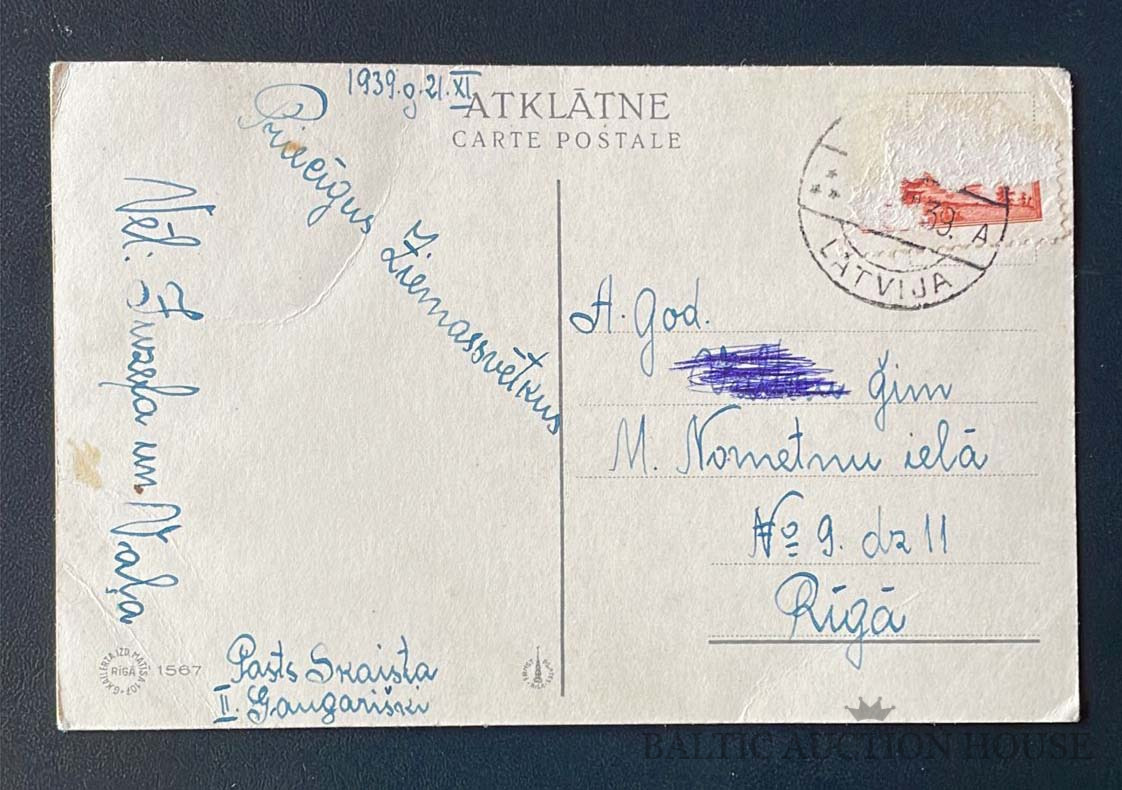 1939.g.21.XI
ATKLĀTNE
CARTE POSTALE
Priecīgus Ziemassvētkus
Vēl: Juzefa un Vaļa
39. A
LATVIJA
A. God.
ģim
M. Nometņu ielā
№ 9. dz 11
Rīgā
RĪGĀ
1567
Pasts Skaista
II. Gaugariški
BALTIC AUCTION HOUSE